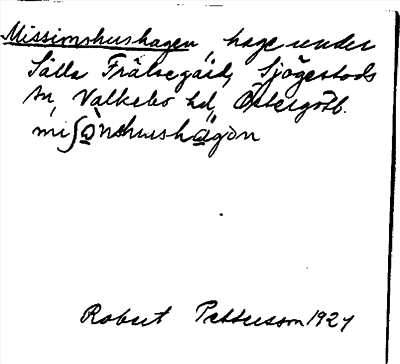 Missionshushagen, hage under
Sälla Frälsegård, Sjögestads
sn, Valkebo hd, Östergötl.
miʃònshushägon
Robert Pettersson 1927